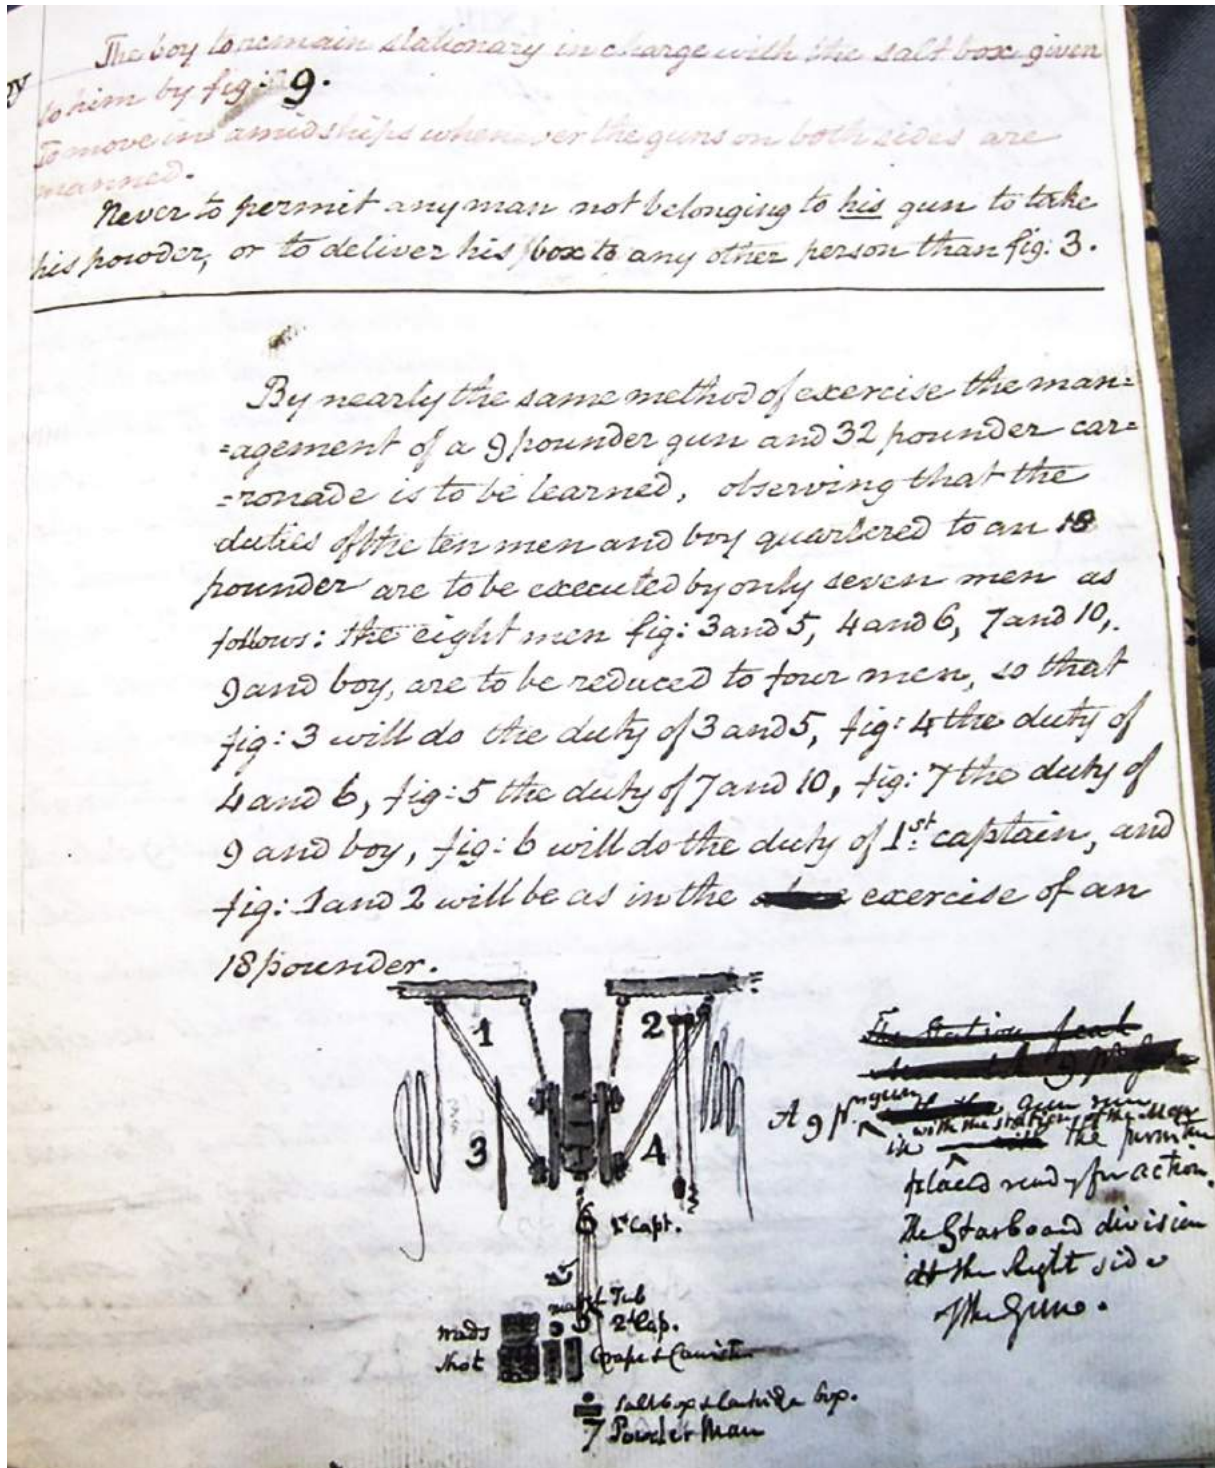 The boy to remain stationary in charge with the salt box given
to him by fig: 9.
To move in amidships whenever the guns on both sides are
manned.
Never to permit any man not belonging to his gun to take
his powder, or to deliver his box to any other person than fig: 3.
By nearly the same method of exercise the man=
=agement of a 9 pounder gun and 32 pounder car=
=ronade is to be learned, observing that the
duties of the ten men and boy quartered to an 18
pounder are to be executed by only seven men as
follows: the eight men fig: 3 and 5, 4 and 6, 7 and 10,
9 and boy, are to be reduced to four men, so that
fig: 3 will do the duty of 3 and 5, fig: 4 the duty of
4 and 6, fig: 5 the duty of 7 and 10, fig: 7 the duty of
9 and boy, fig: 6 will do the duty of 1st captain, and
fig: 1 and 2 will be as in the exercise of an
18 pounder.
1
2
3
4
The Station
A 9 pr. gun run
with the stations of the Men
in the
placed ready for action.
The Starboard division
at the Right side
of the Gun.
1st Capt.
match Tub
2d Cap.
wads
shot
Grape & Canister
Salt box & Cartridge box.
7 Powder Man